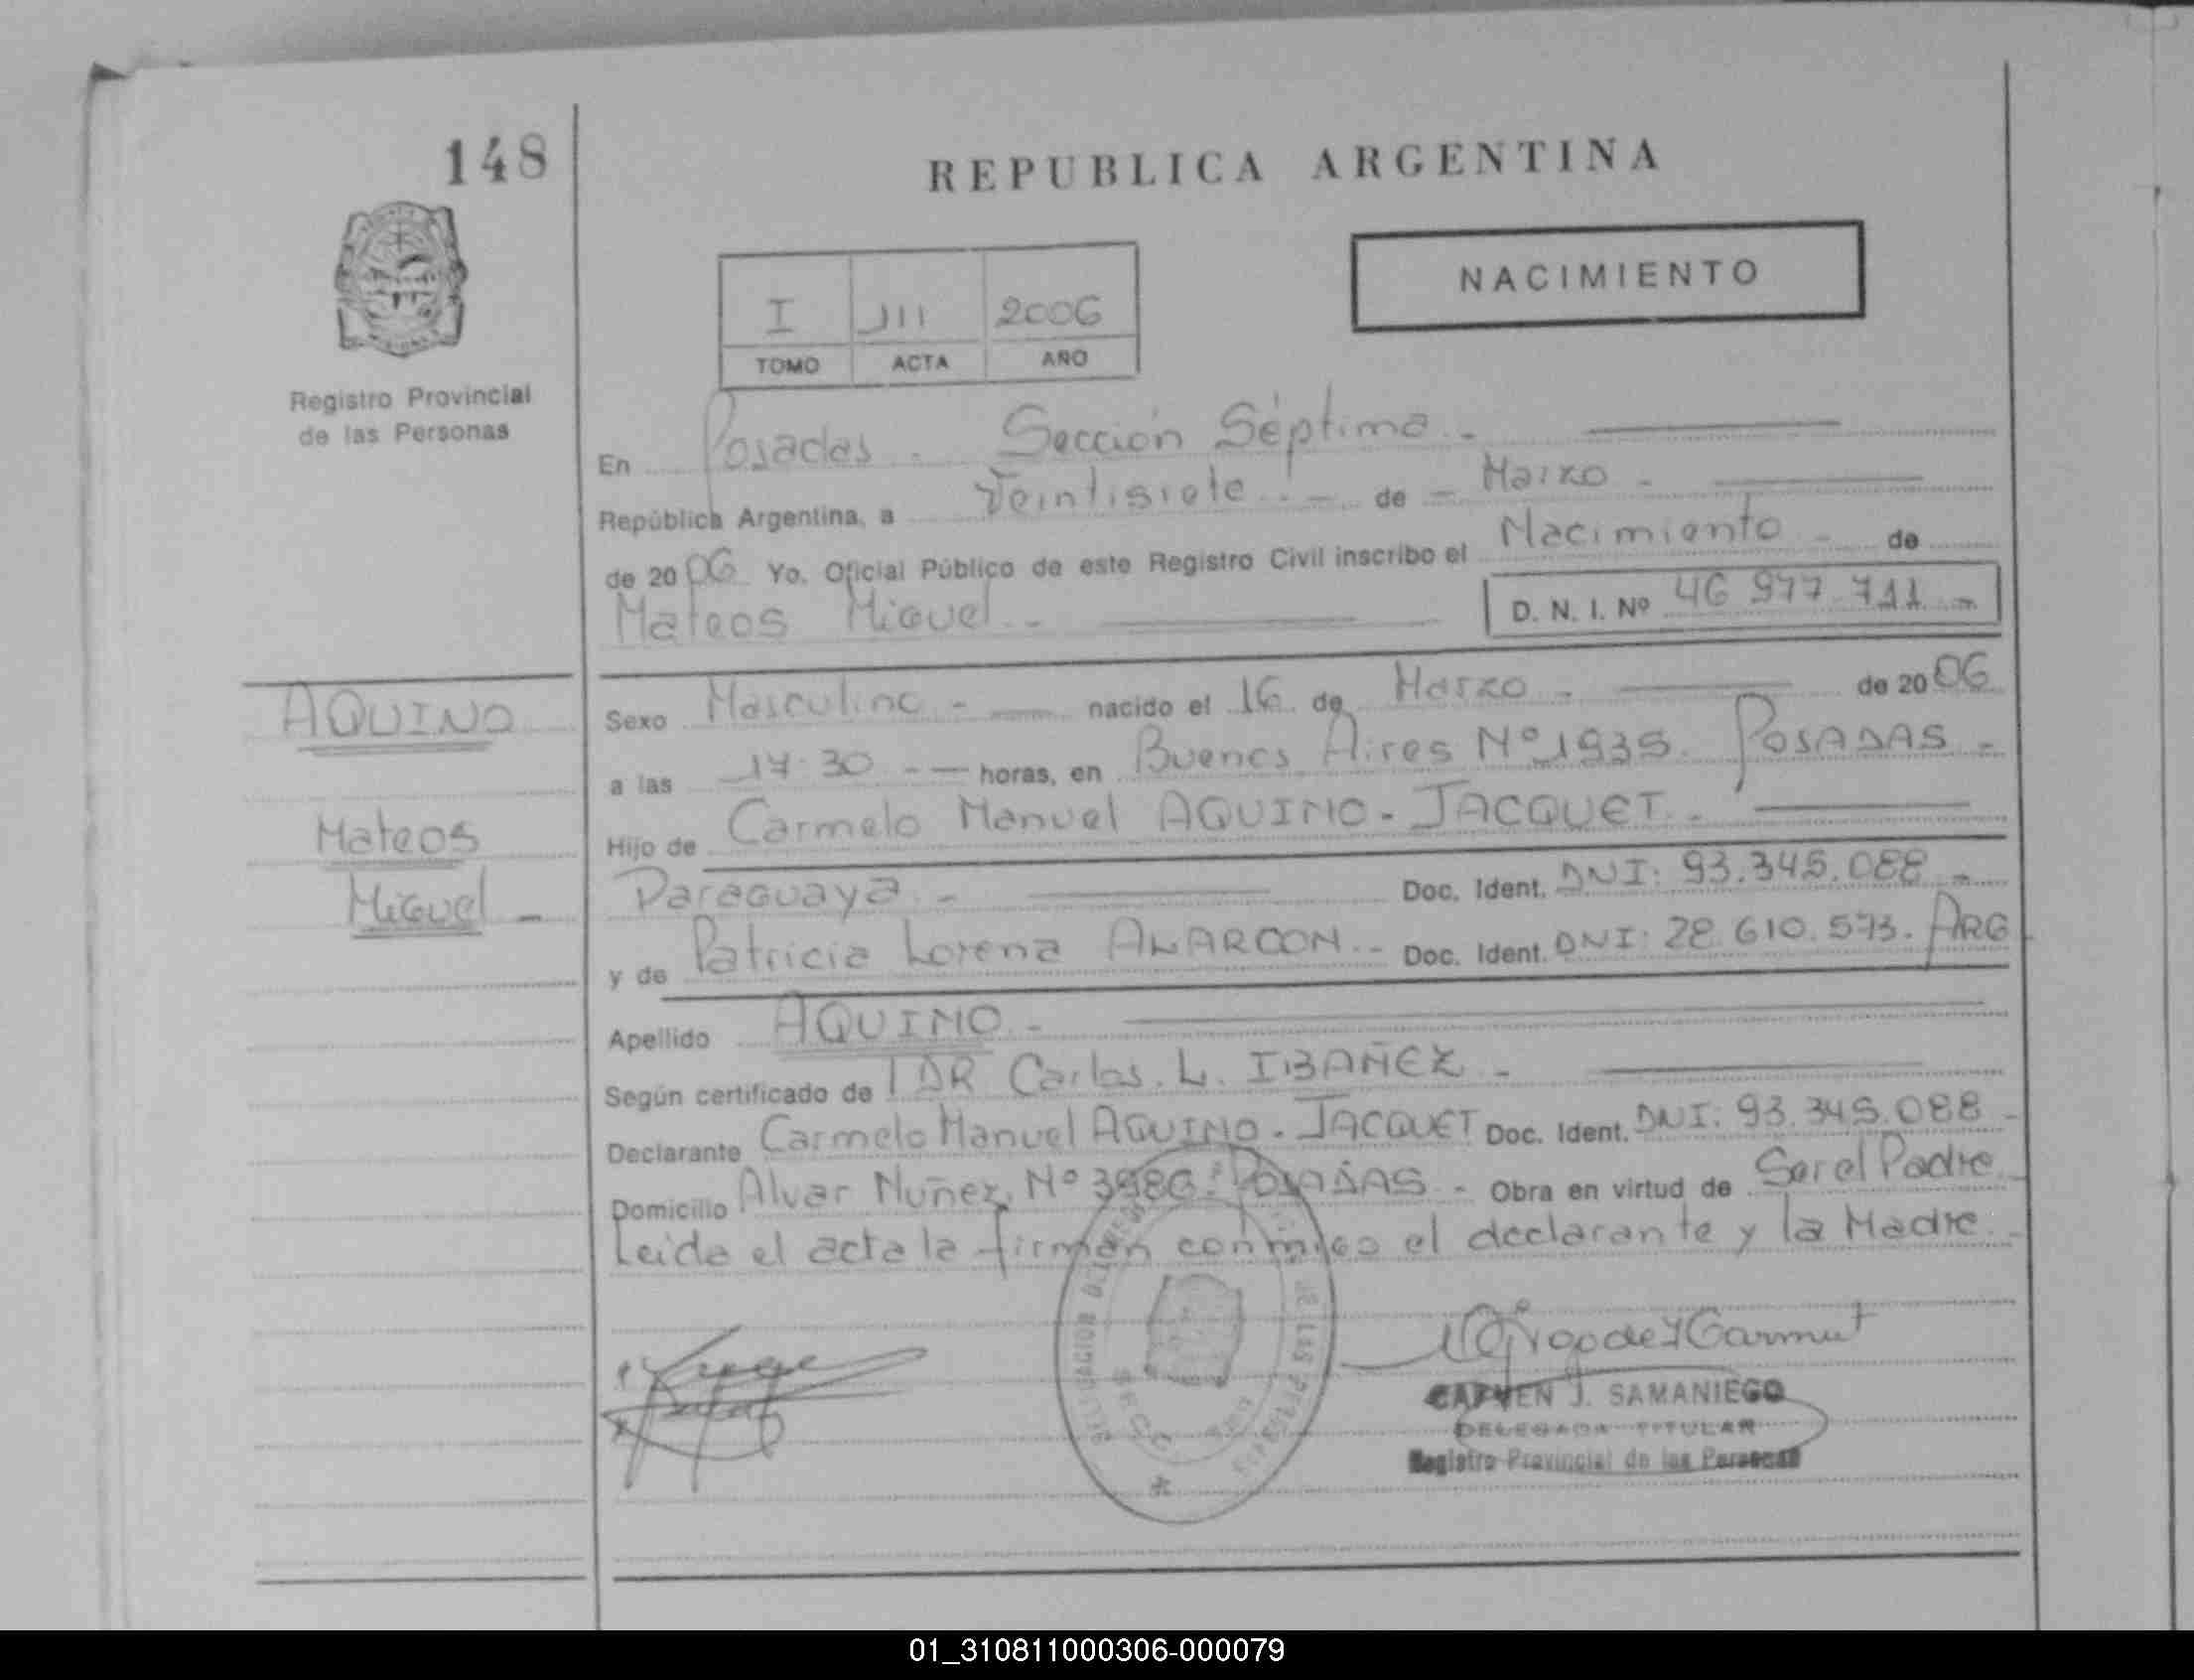 148
REPUBLICA ARGENTINA
NACIMIENTO
I 111 2006
TOMO ACTA AÑO
Registro Provincial
de las Personas
En Posadas - Sección Séptima -
República Argentina, a Veintisiete - de - Marzo -
de 2006 Yo, Oficial Público de este Registro Civil inscribo el Nacimiento - de
Mateos Miguel - D. N. I. Nº 46 977 711 -
AQUINO
Mateos
Miguel -
Sexo Masculino - nacido el 16 de Marzo - de 2006
a las 17:30 - horas, en Buenos Aires Nº 1935. POSADAS -
Hijo de Carmelo Manuel AQUINO - JACQUET -
Paraguaya - Doc. Ident. DNI: 93.345.088 -
y de Patricia Lorena ALARCON - Doc. Ident. DNI: 28.610.573. ARG
Apellido AQUINO -
Según certificado de DR Carlos L. IBAÑEZ -
Declarante Carmelo Manuel AQUINO - JACQUET Doc. Ident. DNI: 93.345.088 -
Domicilio Alvar Nuñez Nº 3986 - POSADAS - Obra en virtud de Ser el Padre
Leida el acta la firman conmigo el declarante y la Madre -
CARMEN J. SAMANIEGO
DELEGADA TITULAR
Registro Provincial de las Personas
01_310811000306-000079